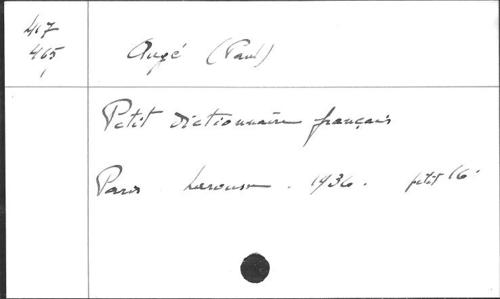 417
465
1
Augé (Paul)
Petit dictionnaire français
Paris Larousse. 1936. petit 16°